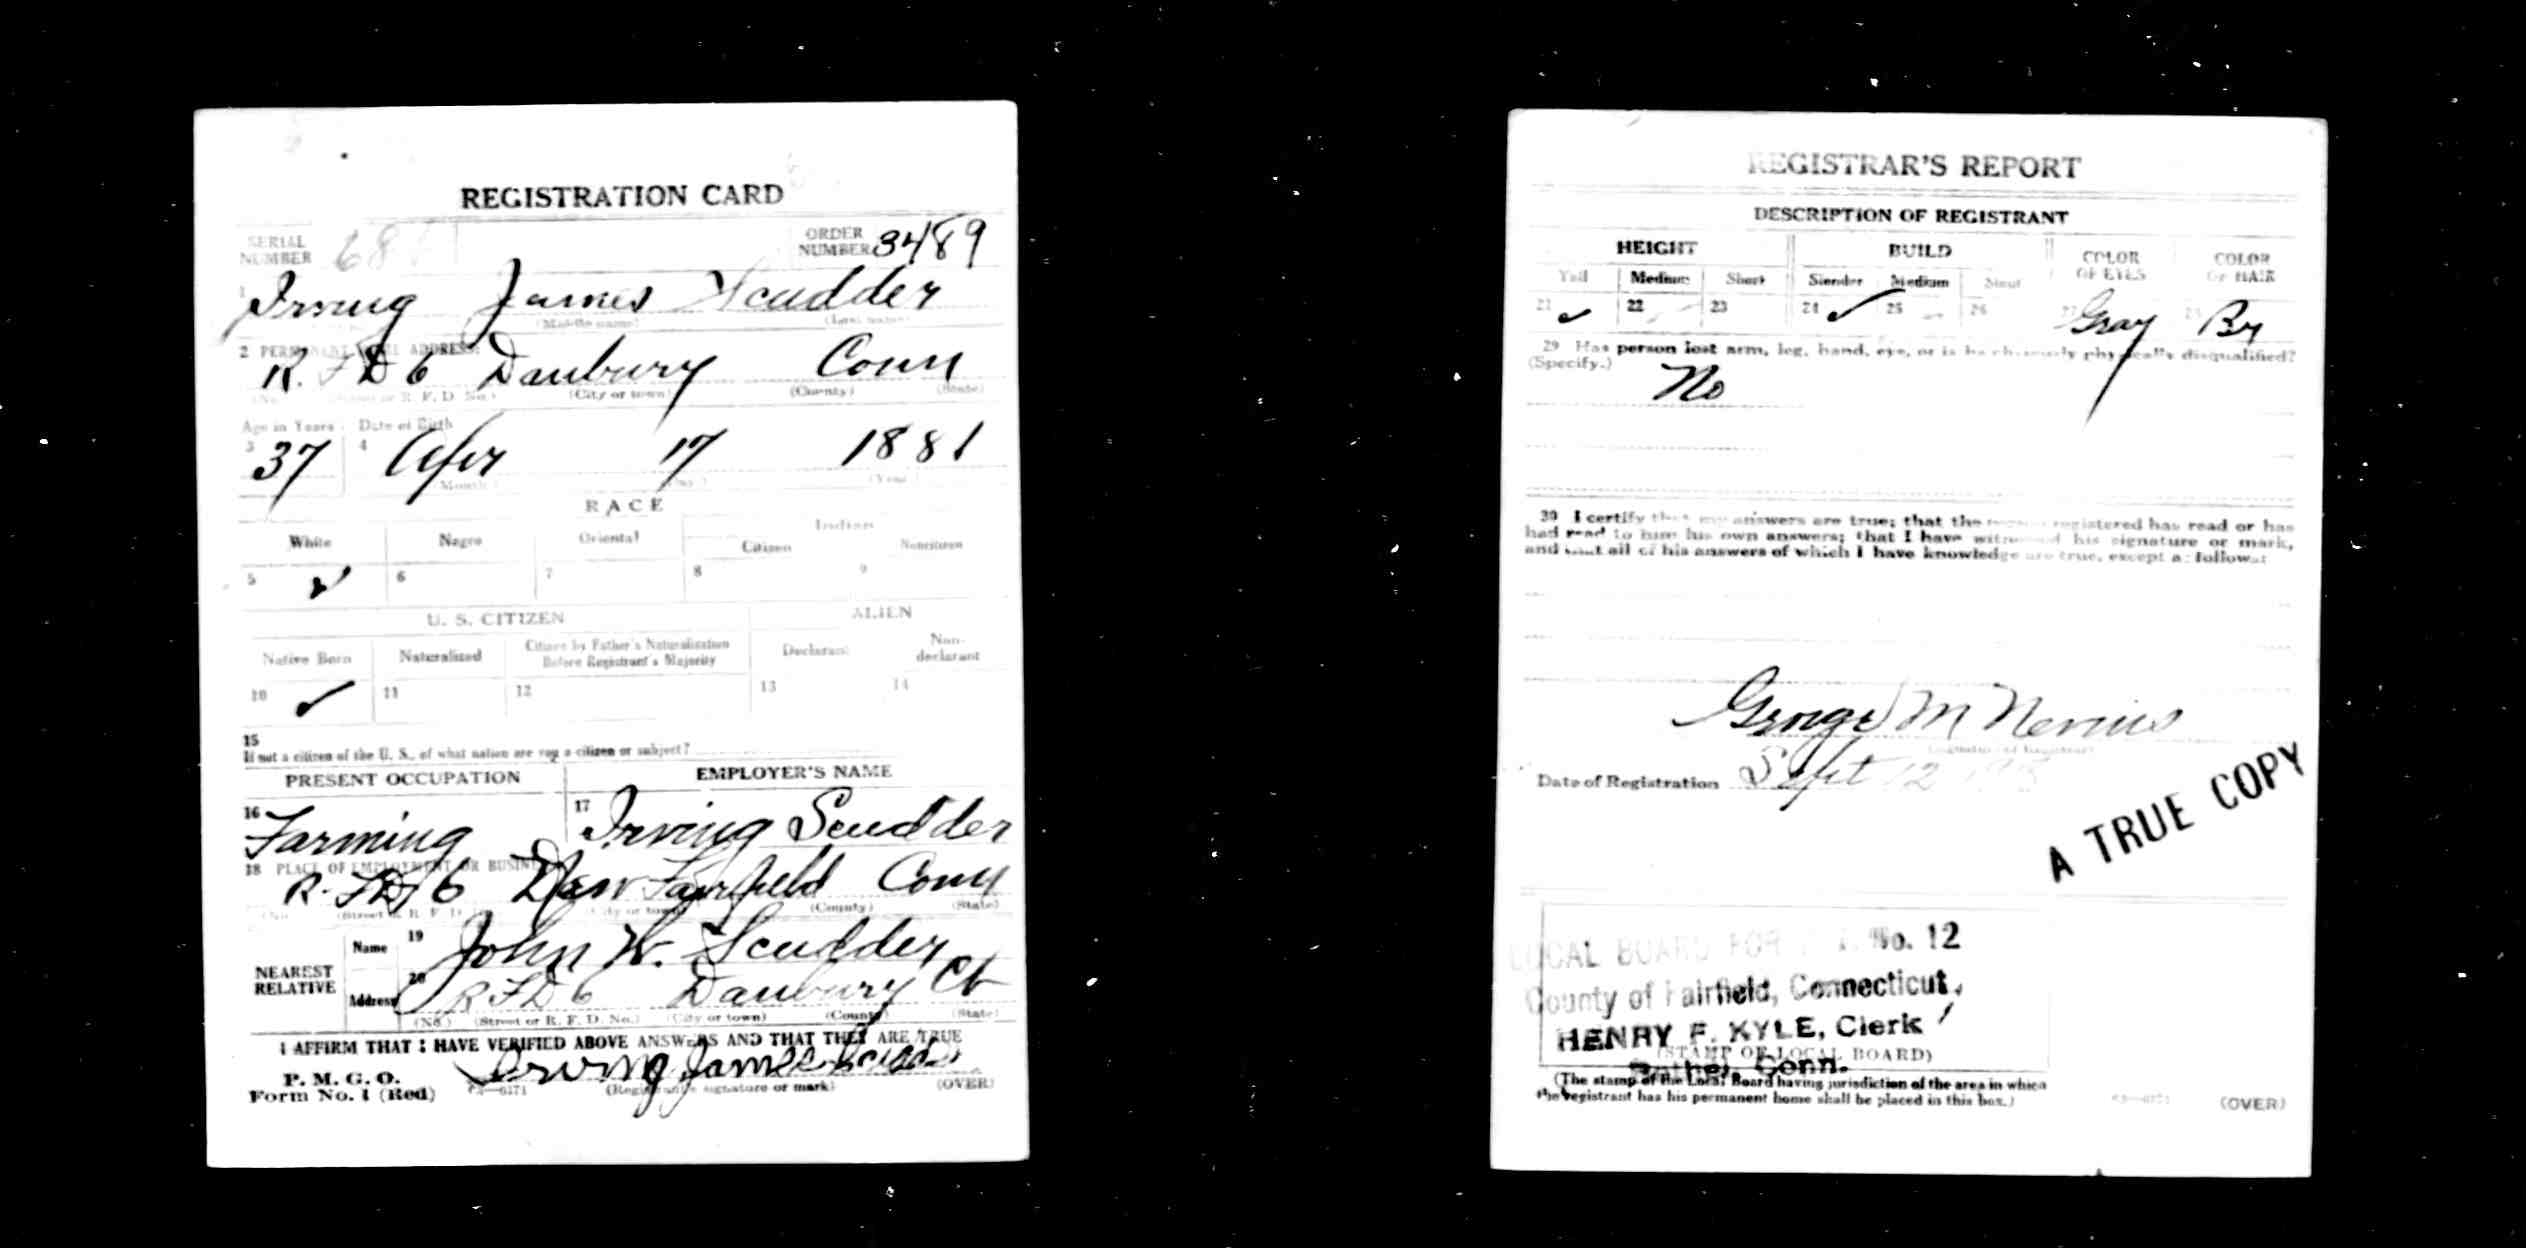 REGISTRATION CARD
SERIAL NUMBER 68 ORDER NUMBER 3489
1 Irving James Scudder
(Middle name) (Last name)
2 PERMANENT HOME ADDRESS:
R. F D 6 Danbury Conn
(No.) (Street or R. F. D. No.) (City or town) (County) (State)
Age in Years Date of Birth
3 37 4 Apr 17 1881
(Month) (Day) (Year)
RACE
White Negro Oriental Indian
Citizen Noncitizen
5 ✓ 6 7 8 9
U. S. CITIZEN ALIEN
Native Born Naturalized Citizen by Father's Naturalization Before Registrant's Majority Declarant Non-declarant
10 ✓ 11 12 13 14
15
If not a citizen of the U. S., of what nation are you a citizen or subject?
PRESENT OCCUPATION EMPLOYER'S NAME
16 Farming 17 Irving Scudder
18 PLACE OF EMPLOYMENT OR BUSINESS
R. F D 6 Fairfield Conn
(No.) (Street or R. F. D. No.) (City or town) (County) (State)
NEAREST RELATIVE
Name 19 John W. Scudder
Address 20 R F D 6 Danbury Ct
(No.) (Street or R. F. D. No.) (City or town) (County) (State)
I AFFIRM THAT I HAVE VERIFIED ABOVE ANSWERS AND THAT THEY ARE TRUE
P. M. G. O.
Form No. 1 (Red) Irving James Scudder
(Registrant's signature or mark) (OVER)
REGISTRAR'S REPORT
DESCRIPTION OF REGISTRANT
HEIGHT BUILD COLOR OF EYES COLOR OF HAIR
Tall Medium Short Slender Medium Stout
21 ✓ 22 23 24 ✓ 25 26 27 Gray 28 Br
29 Has person lost arm, leg, hand, eye, or is he obviously physically disqualified?
(Specify.) No
30 I certify that my answers are true; that the person registered has read or has
had read to him his own answers; that I have witnessed his signature or mark,
and that all of his answers of which I have knowledge are true, except as follows:
George M Nevius
(Signature of Registrar)
Date of Registration Sept 12
A TRUE COPY
LOCAL BOARD FOR No. 12
County of Fairfield, Connecticut,
HENRY F. KYLE, Clerk
(STAMP OF LOCAL BOARD)
Bethel, Conn.
(The stamp of the Local Board having jurisdiction of the area in which
the registrant has his permanent home shall be placed in this box.)
(OVER)